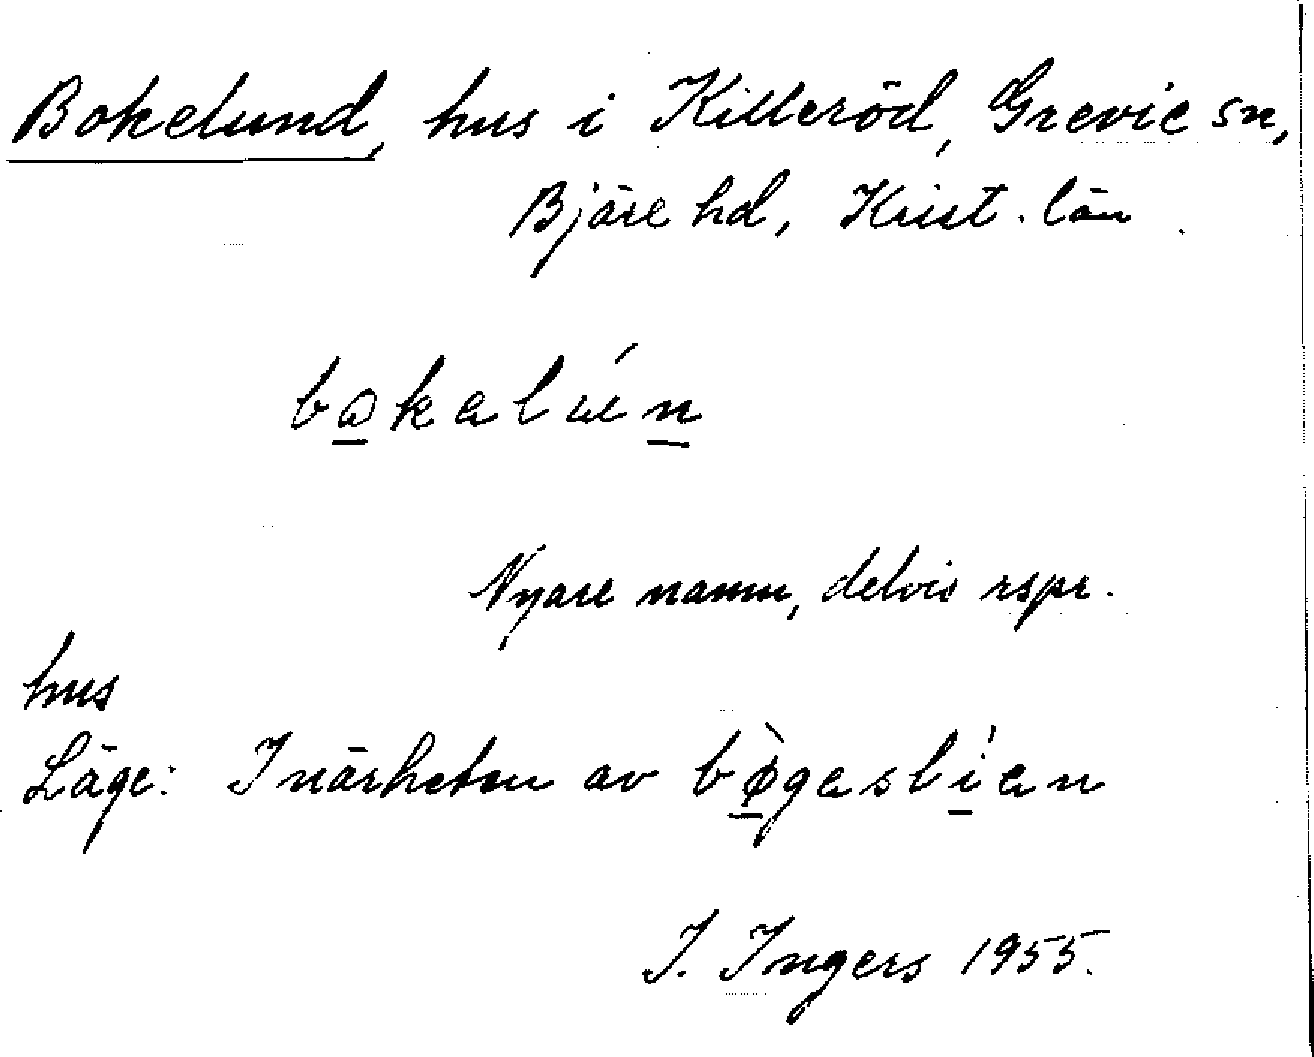 Bokelund, hus i Killeröd, Grevie sn,
Bjäre hd, Krist. län.
bo̲kalún̲
Nyare namn, delvis rspr.
hus
Läge: I närheten av bø̲̀gaslí̲an
I. Ingers 1955.